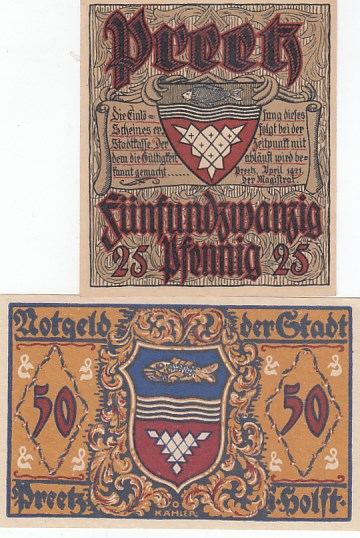 Preetz
Die Einlö= sung dieses
Scheines er= folgt bei der
Stadtkasse. Der Zeitpunkt mit
dem die Gültigkeit abläuft wird be=
kannt gemacht...... Preetz, April 1921.
der Magistrat.
Fünfundzwanzig
25 Pfennig 25
Notgeld der Stadt
50 50
Preetz i. Holst.
KÄHLER